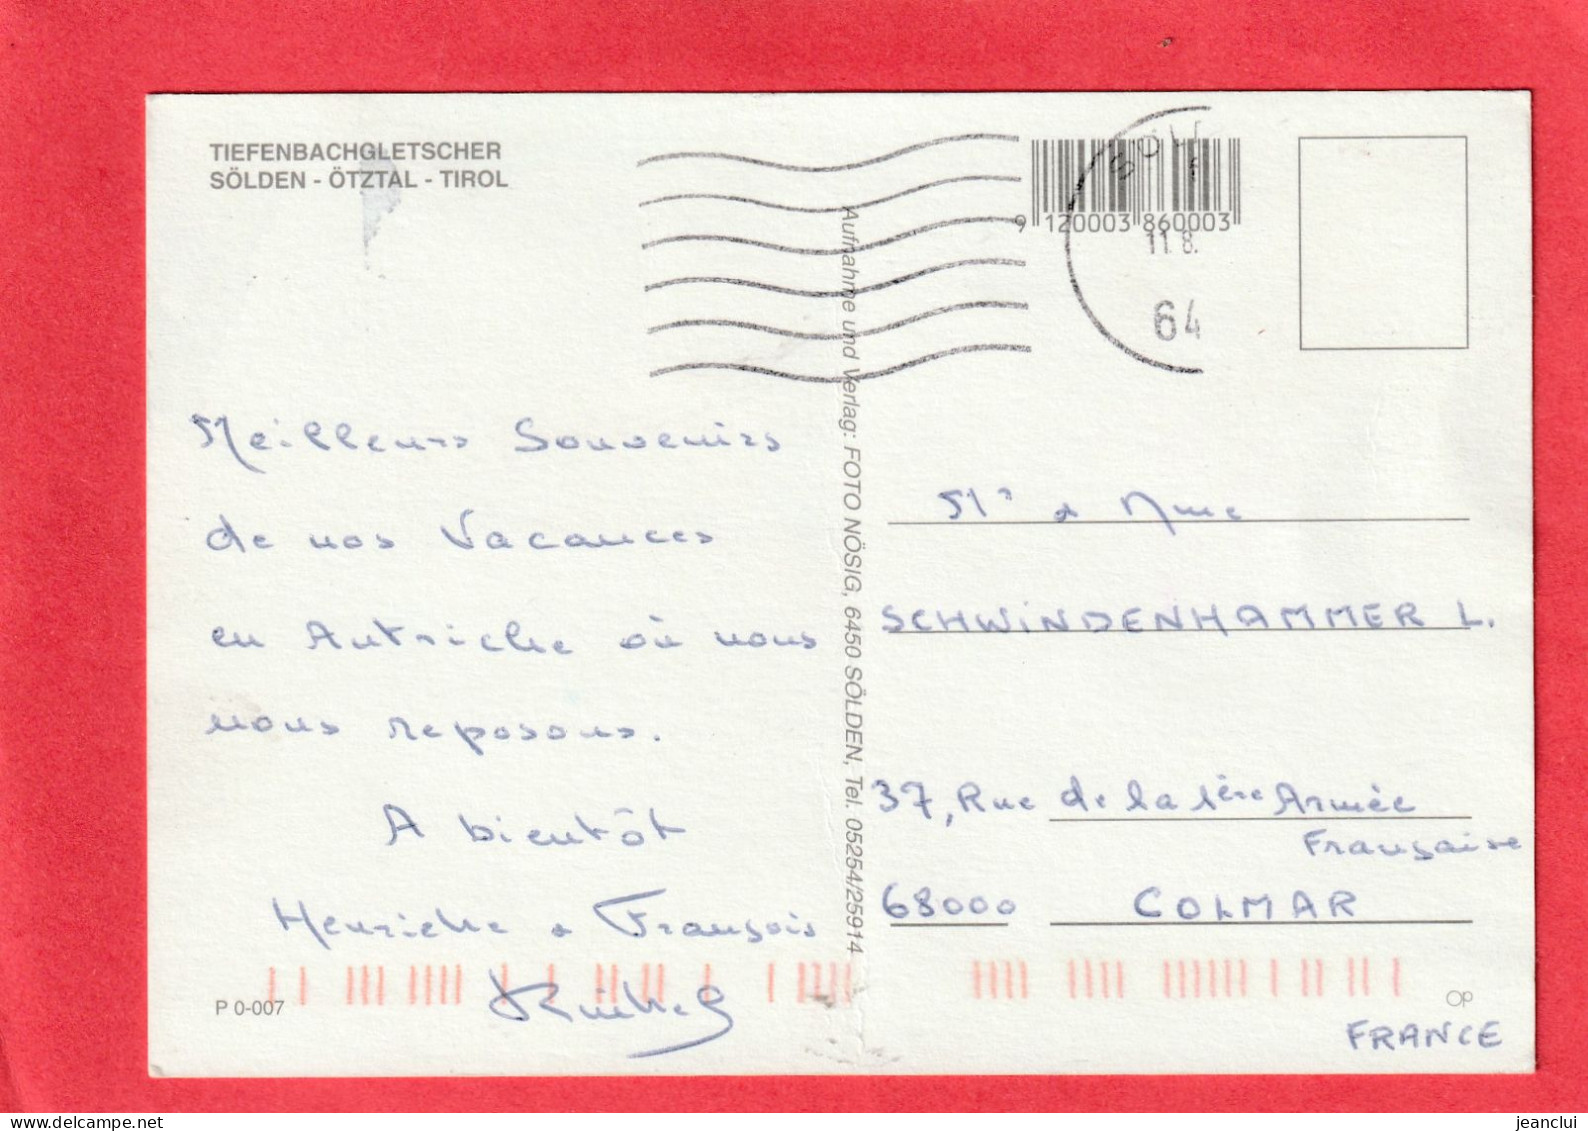 TIEFENBACHGLETSCHER
SÖLDEN - ÖTZTAL - TIROL
Meilleurs Souvenirs
de nos Vacances
en Autriche où nous
nous reposons.
A bientôt
François
P 0-007
Aufnahme und Verlag: FOTO NÖSIG, 6450 SÖLDEN, Tel. 05254/25914
9 120003 860003
11.8.
64
Mr & Mme
SCHWINDENHAMMER L.
37, Rue de la 1ère Armée
Française
68000 COLMAR
FRANCE
delcampe.net
jeanclui